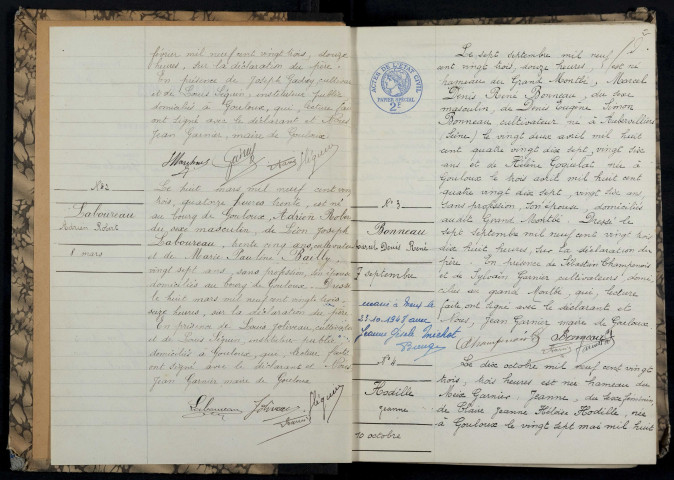 février mil neuf cent vingt trois, douze
heures, sur la déclaration du père.
En présence de Joseph Gadrey cultivateur
et de Louis Séguin, instituteur public
domiciliés à Gouloux, qui, lecture faite
ont signé avec le déclarant et Nous
Jean Garnier, maire de Gouloux.
N° 2
Laboureau
Adrien Robert
8 mars
Le huit mars mil neuf cent vingt
trois, quatorze heures trente, est né
au bourg de Gouloux, Adrien Robert
du sexe masculin, de Léon Joseph
Laboureau, trente cinq ans, cultivateur
et de Marie Pauline Bailly,
vingt sept ans, sans profession, son épouse
domiciliés au bourg de Gouloux. Dressé
le huit mars mil neuf cent vingt trois,
seize heures, sur la déclaration du père
En présence de Louis Joliveau, cultivateur
et de Louis Séguin, instituteur public
domiciliés à Gouloux, qui, lecture faite
ont signé avec le déclarant et Nous
Jean Garnier maire de Gouloux
Laboureau Joliveau
ACTES DE L'ÉTAT CIVIL
PAPIER SPÉCIAL
2F
N° 3
Bonneau
Marcel Denis René
7 septembre
marié à
23-10-1948 avec
Jeanne Gisèle
N° 4
Rodille
Jeanne
10 octobre
Le sept septembre mil neuf
cent vingt trois, douze heures, est né
hameau du Grand Montha, Marcel
Denis René Bonneau, du sexe
masculin, de Denis Eugène Simon
Bonneau cultivateur né à Aubervilliers
(Seine) le vingt deux avril mil huit
cent quatre vingt dix sept, vingt six
ans et de Hélène Coquelat née à
Gouloux le trois avril mil huit cent
quatre vingt dix sept, vingt six ans
sans profession, son épouse, domiciliés
audit Grand Montha. Dressé le
sept septembre mil neuf cent vingt trois
dix huit heures, sur la déclaration du
père. En présence de Champenois
et de Sylvain Garnier cultivateurs domi-
ciliés au Grand Montha, qui, lecture
faite ont signé avec le déclarant et
Nous, Jean Garnier maire de Gouloux
Champenois Bonneau
Le dix octobre mil neuf cent vingt
trois, trois heures est née hameau du
Meix Garnier, Jeanne, du sexe féminin,
de Claire Jeanne Héloïse Rodille, née
à Gouloux le vingt sept mai mil huit